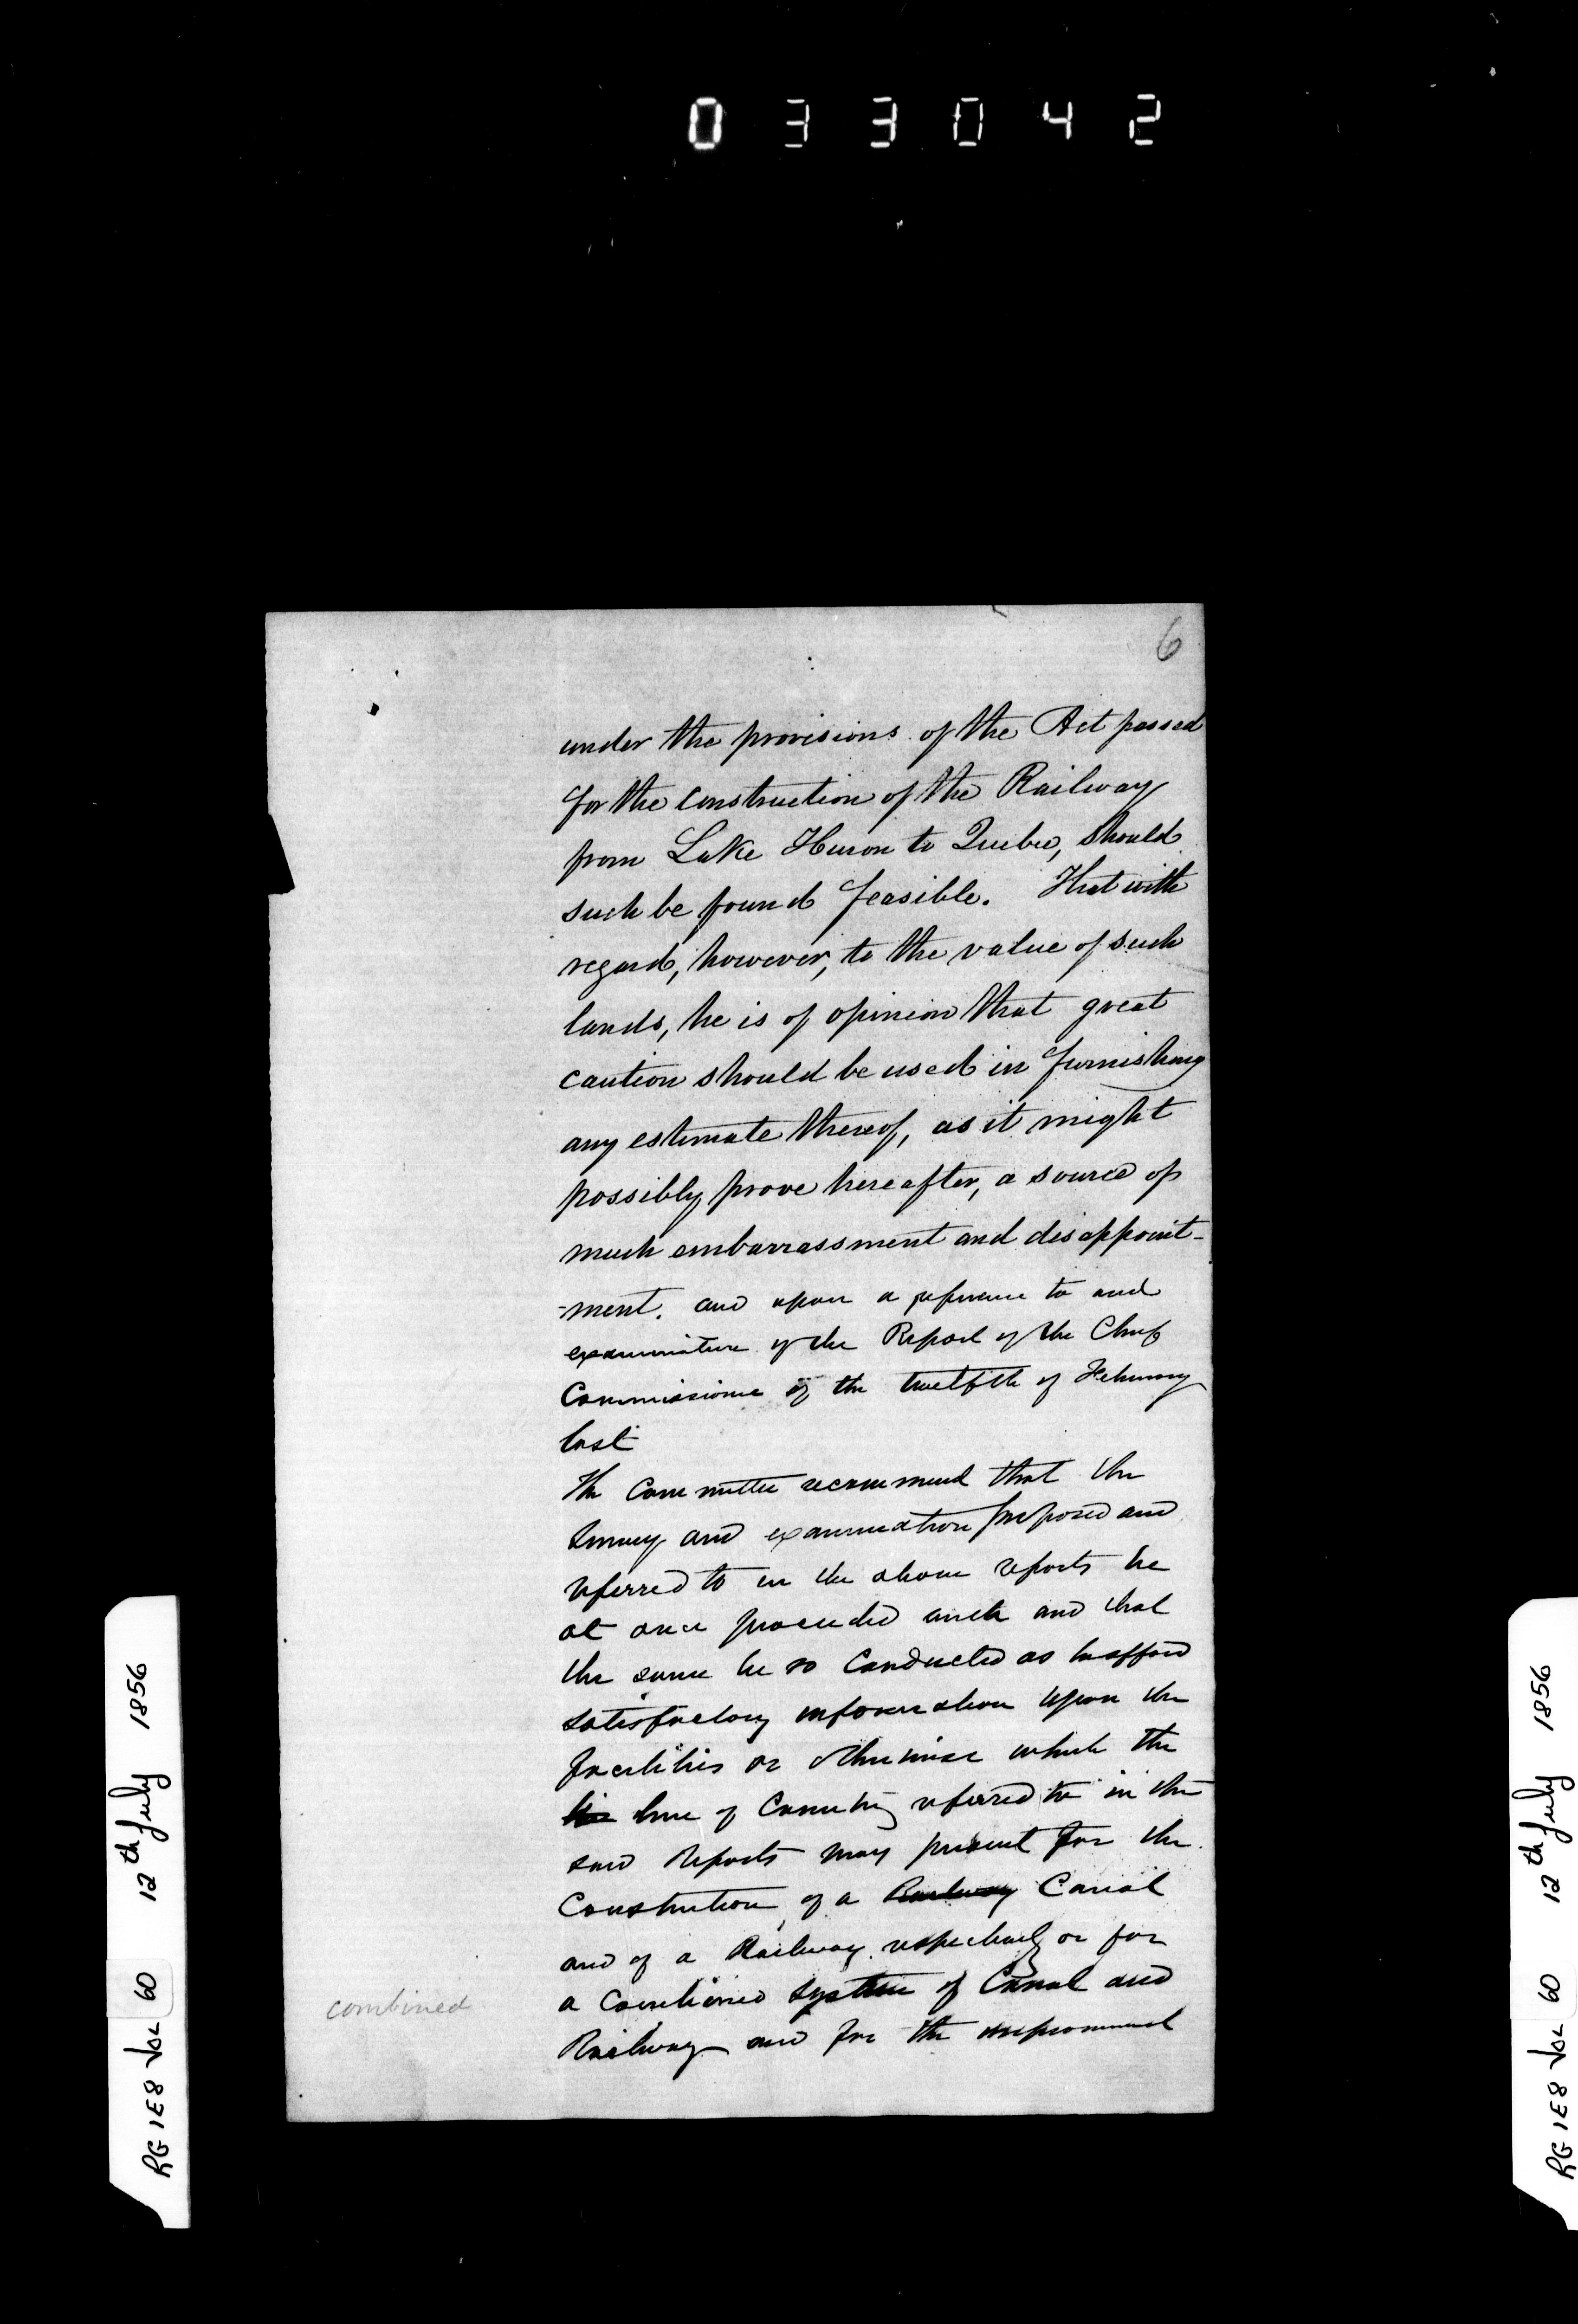 033042
6
under the provisions of the Act passed
for the construction of the Railway
from Lake Huron to Quebec, should
such be found feasible. That with
regard, however, to the value of such
lands, he is of opinion that great
caution should be used in furnishing
any estimate thereof, as it might
possibly prove hereafter, a source of
much embarrassment and disappoint-
-ment. and upon a reference to and
examination of the Report of the Chief
Commissioner of the twelfth of February
last
The Committee recommend that the
Survey and examination proposed and
referred to in the above reports be
at once proceeded with and that
the same be so conducted as to afford
satisfactory information upon the
facilities or otherwise which the
line of Country referred to in the
said Reports may present for the
Construction of a Railway Canal
and of a Railway respectively or for
a combined system of Canal and
combined
Railway and for the improvement
RG 1E8 Vol 60 12th July 1856
RG 1E8 Vol 60 12th July 1856